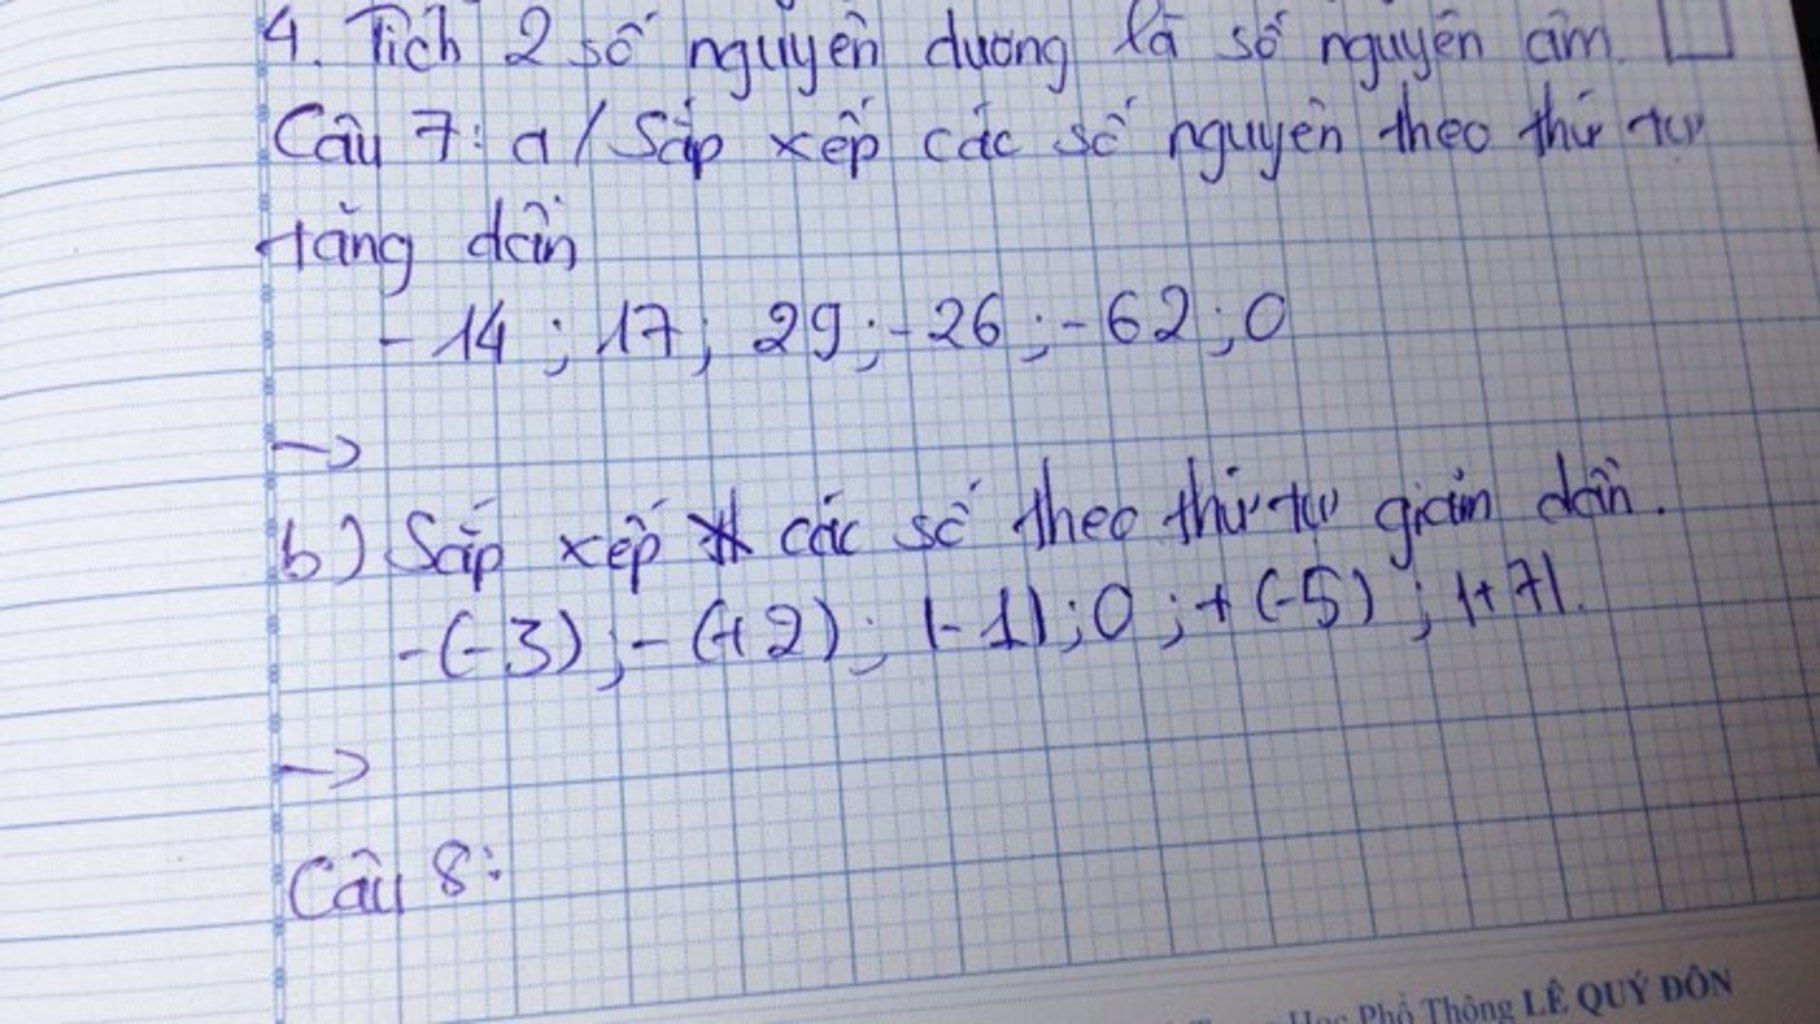 4. Tích 2 số nguyên dương là số nguyên âm.
Câu 7: a/ Sắp xếp các số nguyên theo thứ tự
tăng dần
-14; 17; 29; -26; -62; 0
→
b) Sắp xếp các số theo thứ tự giảm dần.
-(-3); -(+2); |-1|; 0; +(-5); |+7|.
→
Câu 8:
Học Phổ Thông LÊ QUÝ ĐÔN